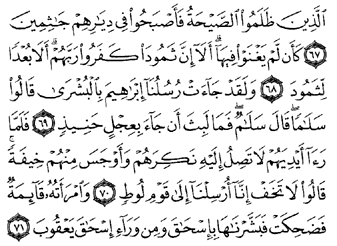 ٱلَّذِينَ ظَلَمُوا۟ ٱلصَّيْحَةُ فَأَصْبَحُوا۟ فِى دِيَٰرِهِمْ جَٰثِمِينَ
٦٧ كَأَن لَّمْ يَغْنَوْا۟ فِيهَآ ۗ أَلَآ إِنَّ ثَمُودَا۟ كَفَرُوا۟ رَبَّهُمْ ۗ أَلَا بُعْدًا
لِّثَمُودَ ٦٨ وَلَقَدْ جَآءَتْ رُسُلُنَآ إِبْرَٰهِيمَ بِٱلْبُشْرَىٰ قَالُوا۟
سَلَٰمًا ۖ قَالَ سَلَٰمٌ ۖ فَمَا لَبِثَ أَن جَآءَ بِعِجْلٍ حَنِيذٍ ٦٩ فَلَمَّا
رَءَآ أَيْدِيَهُمْ لَا تَصِلُ إِلَيْهِ نَكِرَهُمْ وَأَوْجَسَ مِنْهُمْ خِيفَةً ۚ
قَالُوا۟ لَا تَخَفْ إِنَّآ أُرْسِلْنَآ إِلَىٰ قَوْمِ لُوطٍ ٧٠ وَٱمْرَأَتُهُۥ قَآئِمَةٌ
فَضَحِكَتْ فَبَشَّرْنَٰهَا بِإِسْحَٰقَ وَمِن وَرَآءِ إِسْحَٰقَ يَعْقُوبَ ٧١